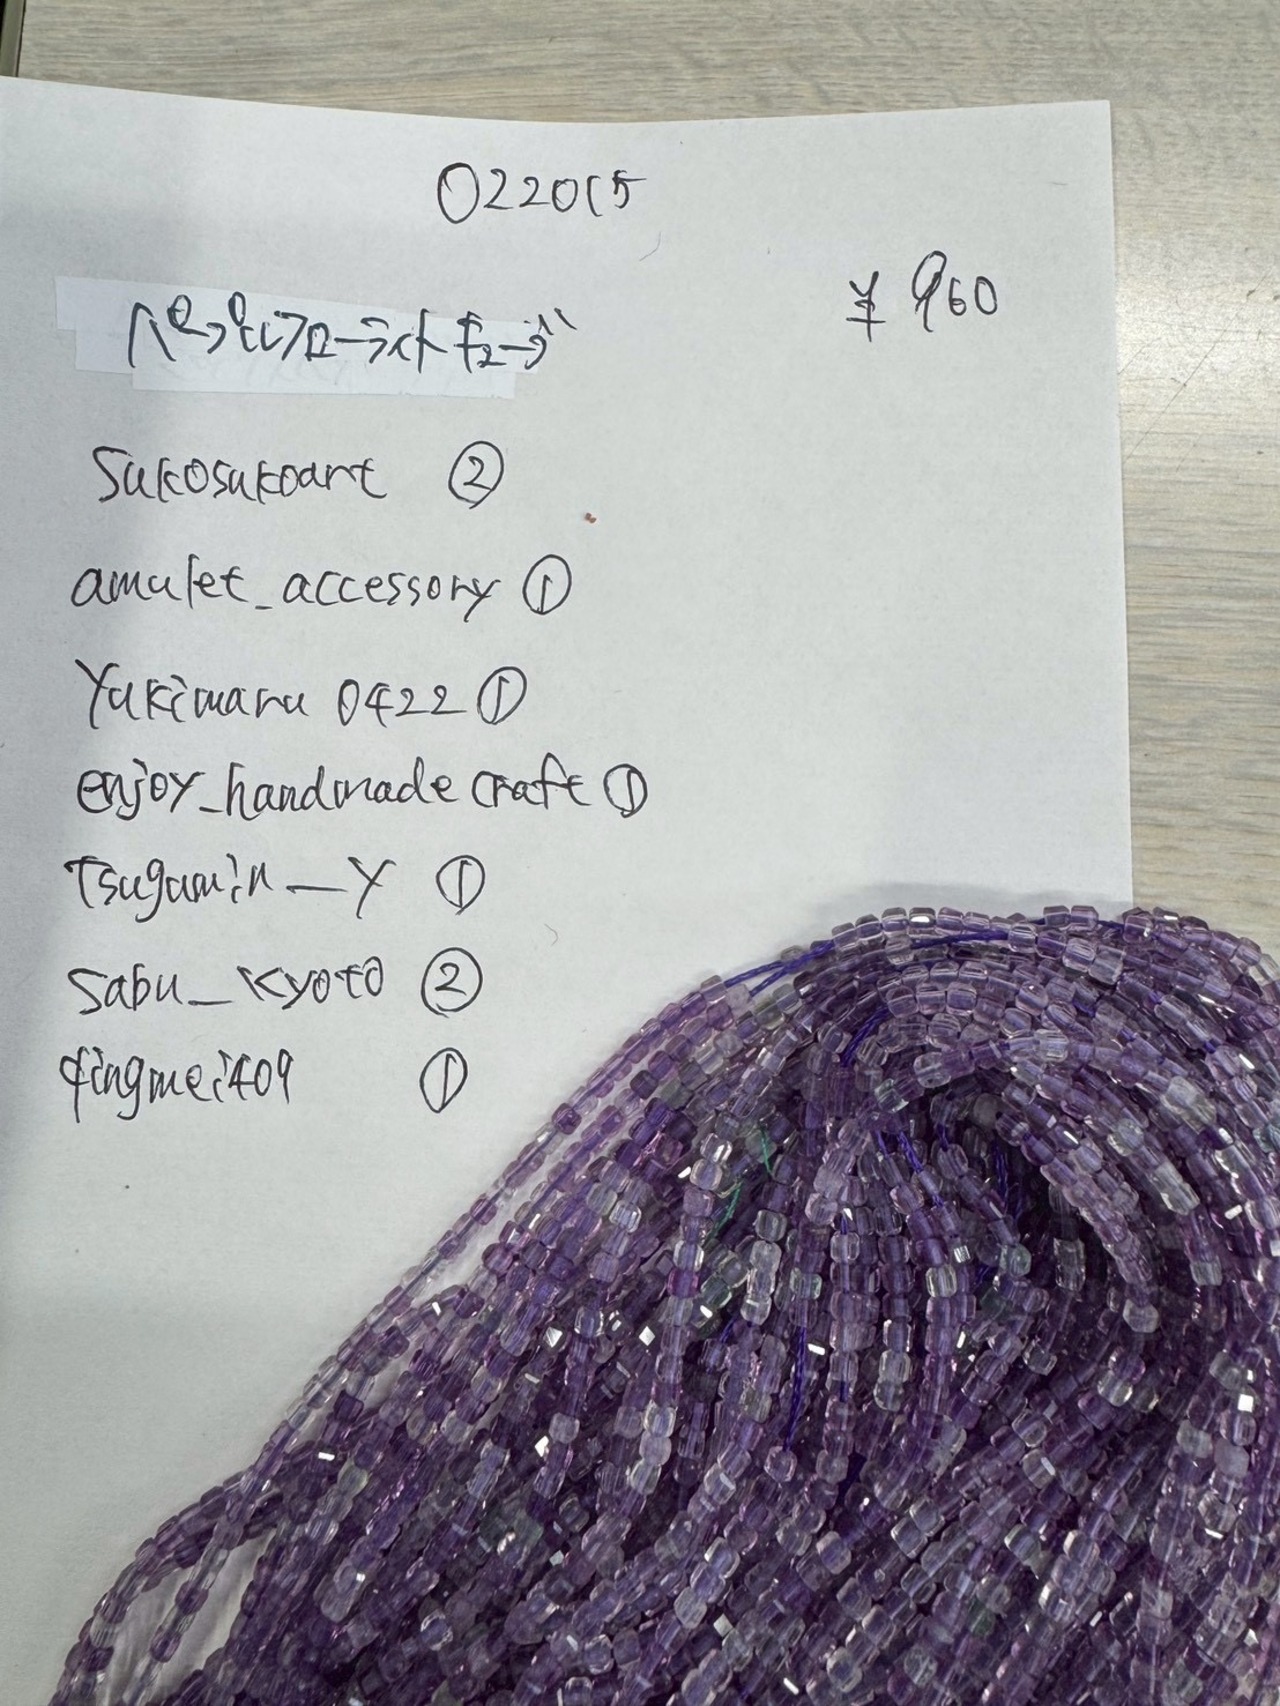 022015
¥960
sukosukoart ②
amulet_accessory ①
Yukimaru 0422 ①
enjoy_handmade craft ①
Tsugumin_Y ①
Sabu_Kyoto ②
qingmei409 ①